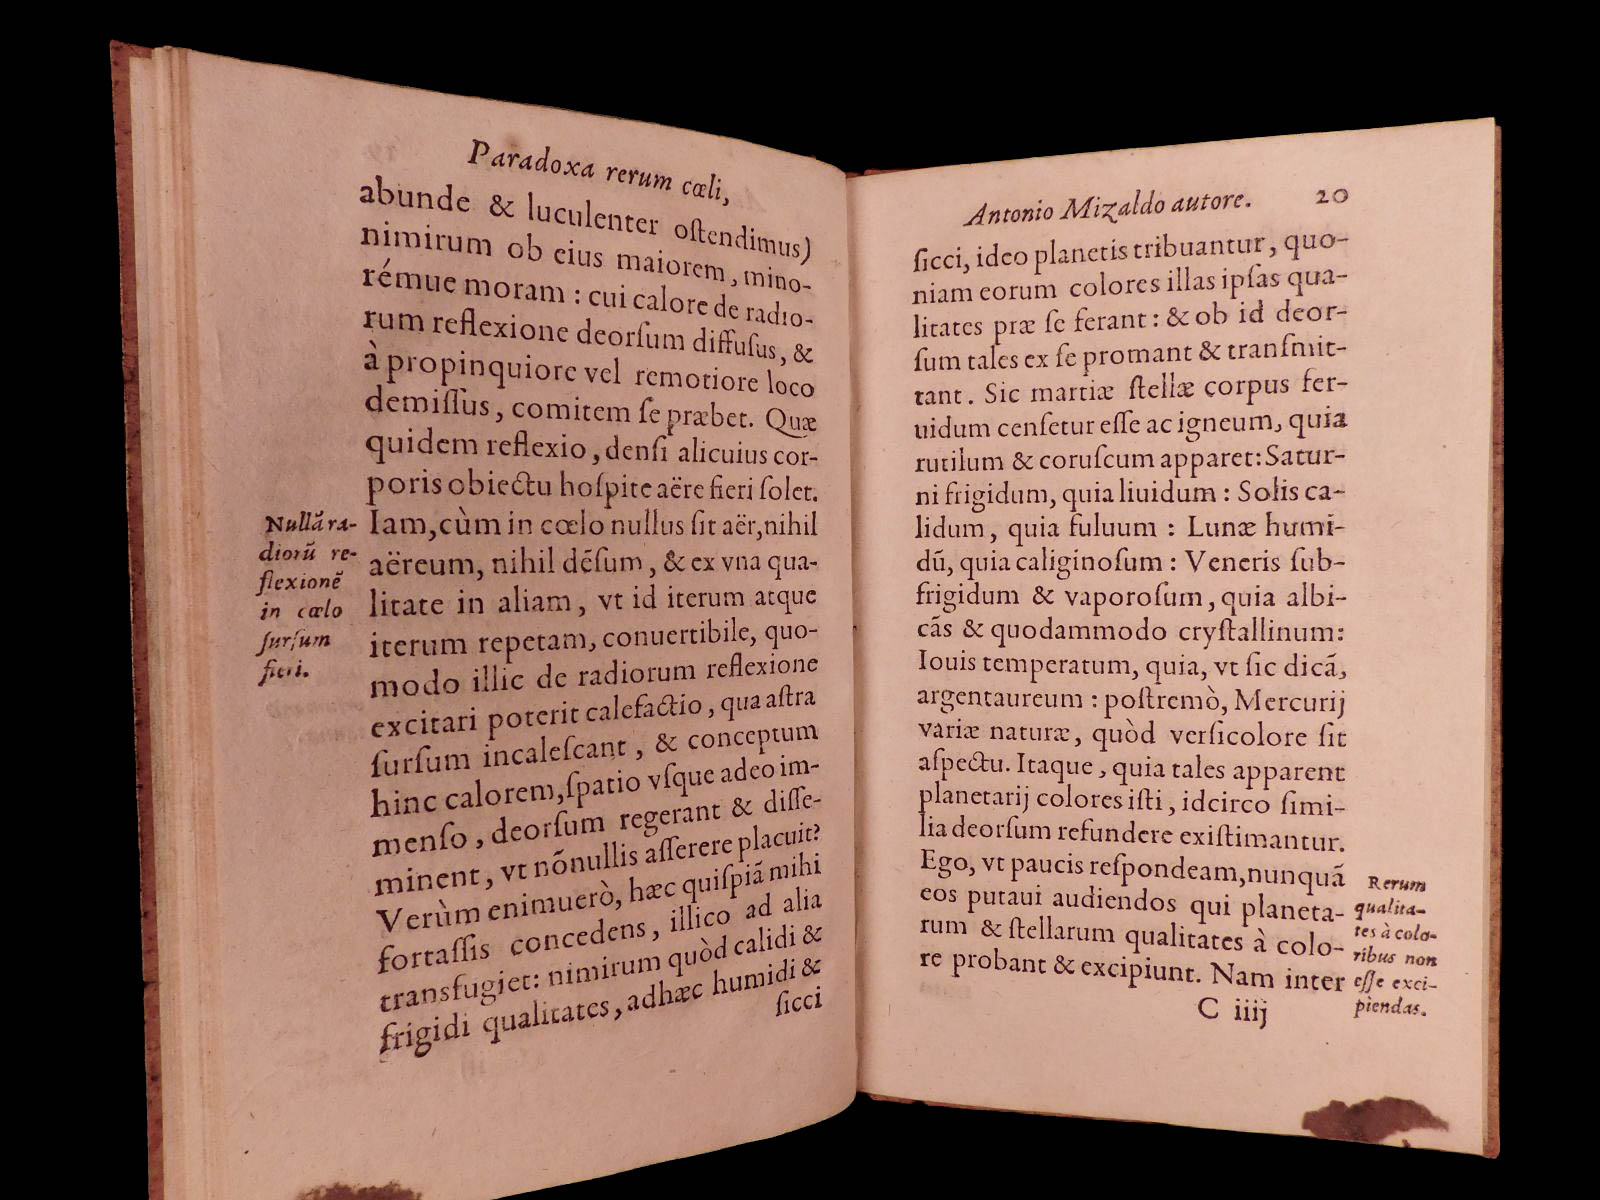 Paradoxa rerum cœli,
abunde & luculenter oſtendimus)
nimirum ob eius maiorem, mino-
rémue moram : cui calore de radio-
rum reflexione deorſum diffuſus, &
à propinquiore vel remotiore loco
demiſſus, comitem ſe præbet. Quæ
quidem reflexio, denſi alicuius cor-
poris obiectu hoſpite aëre fieri ſolet.
Iam, cùm in cœlo nullus ſit aër, nihil
aëreum, nihil dēſum, & ex vna qua-
litate in aliam, vt id iterum atque
iterum repetam, conuertibile, quo-
modo illic de radiorum reflexione
excitari poterit calefactio, qua aſtra
ſurſum incaleſcant, & conceptum
hinc calorem, ſpatio vſque adeo im-
menſo, deorſum regerant & diſſe-
minent, vt nōnullis aſſerere placuit?
Verùm enimuerò, hæc quiſpiā mihi
fortaſſis concedens, illico ad alia
transfugiet: nimirum quòd calidi &
frigidi qualitates, adhæc humidi &
ſicci
Nullā ra-
diorū re-
flexionē
in cœlo
ſurſum
fieri.
Antonio Mizaldo autore. 20
ſicci, ideo planetis tribuantur, quo-
niam eorum colores illas ipſas qua-
litates præ ſe ferant : & ob id deor-
ſum tales ex ſe promant & tranſmit-
tant. Sic martiæ ſtellæ corpus fer-
uidum cenſetur eſſe ac igneum, quia
rutilum & coruſcum apparet: Satur-
ni frigidum, quia liuidum : Solis ca-
lidum, quia fuluum : Lunæ humi-
dū, quia caliginoſum : Veneris ſub-
frigidum & vaporoſum, quia albi-
cās & quodammodo cryſtallinum:
Iouis temperatum, quia, vt ſic dicā,
argentaureum : poſtremò, Mercurij
variæ naturæ, quòd verſicolore ſit
aſpectu. Itaque, quia tales apparent
planetarij colores iſti, idcirco ſimi-
lia deorſum refundere exiſtimantur.
Ego, vt paucis reſpondeam, nunquā
eos putaui audiendos qui planeta-
rum & ſtellarum qualitates à colo-
re probant & excipiunt. Nam inter
C iiij
Rerum
qualita-
tes à colo-
ribus non
eſſe exci-
piendas.